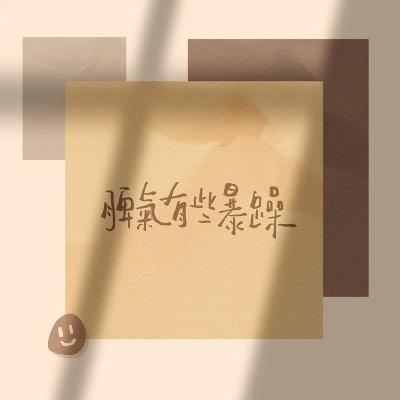 脾氣有些暴躁